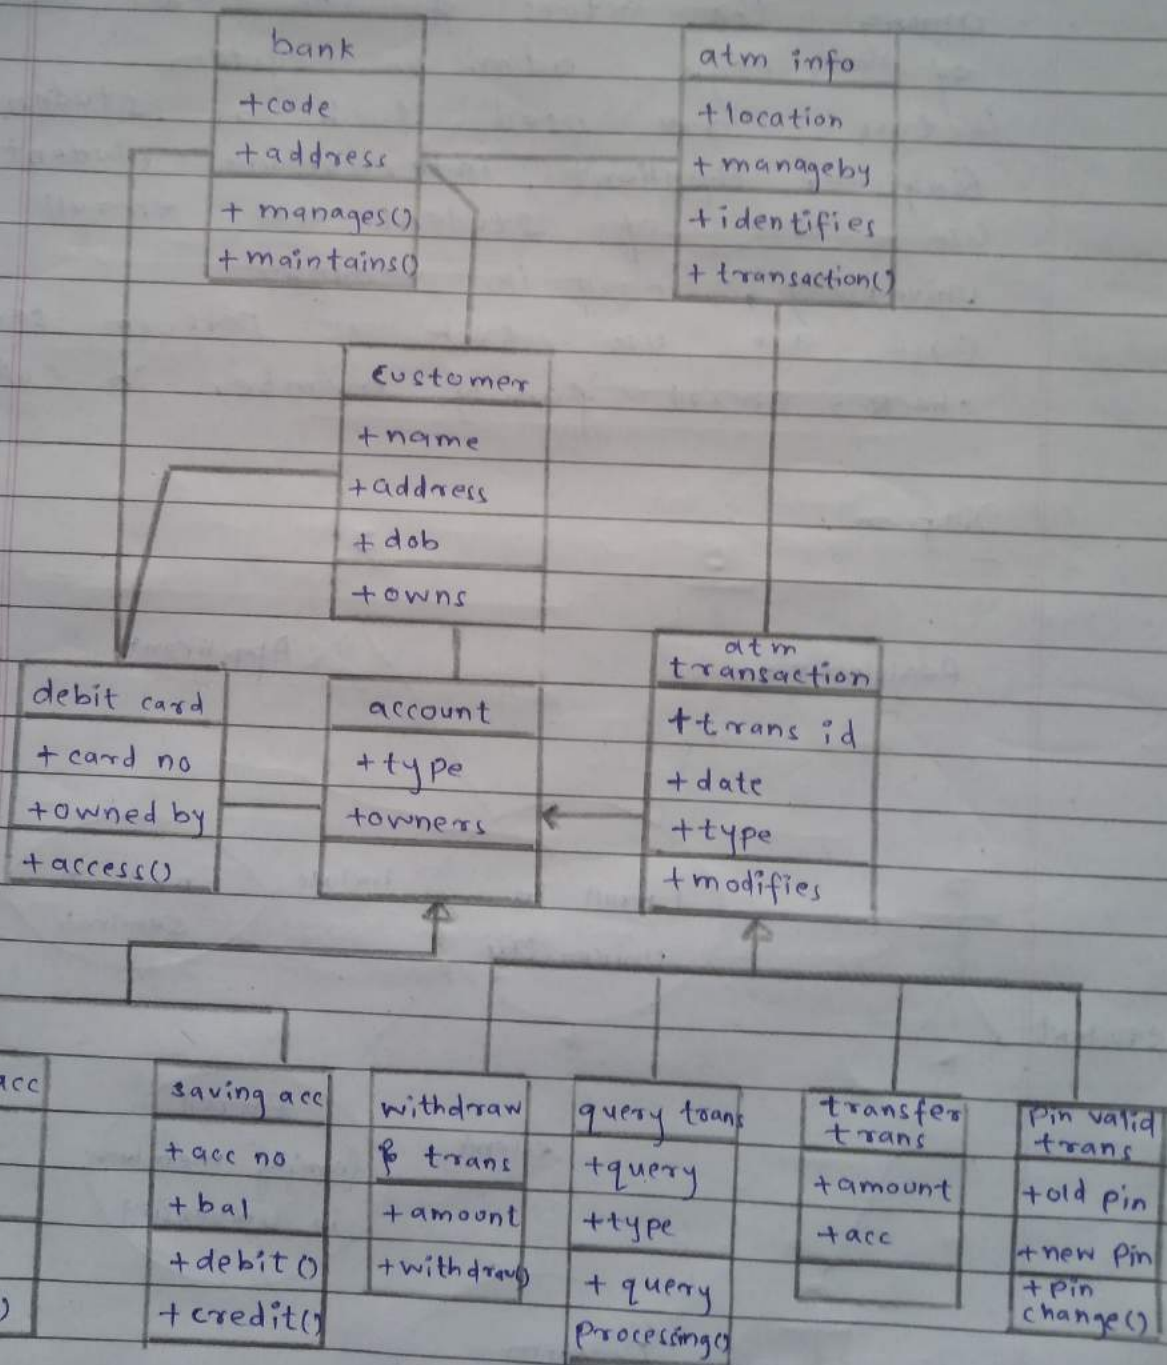 bank
+code
+address
+ manages()
+ maintains()
atm info
+ location
+ manageby
+ identifies
+ transaction()
customer
+ name
+ address
+ dob
+ owns
debit card
+ card no
+ owned by
+ access()
account
+ type
+owners
atm
transaction
+ trans id
+ date
+ type
+ modifies
acc
)
saving acc
+ acc no
+ bal
+ debit ()
+ credit()
withdraw
trans
+ amount
+ withdraw()
query trans
+query
+type
+ query
processing()
transfer
trans
+ amount
+ acc
pin valid
trans
+ old pin
+ new pin
+ pin
change()